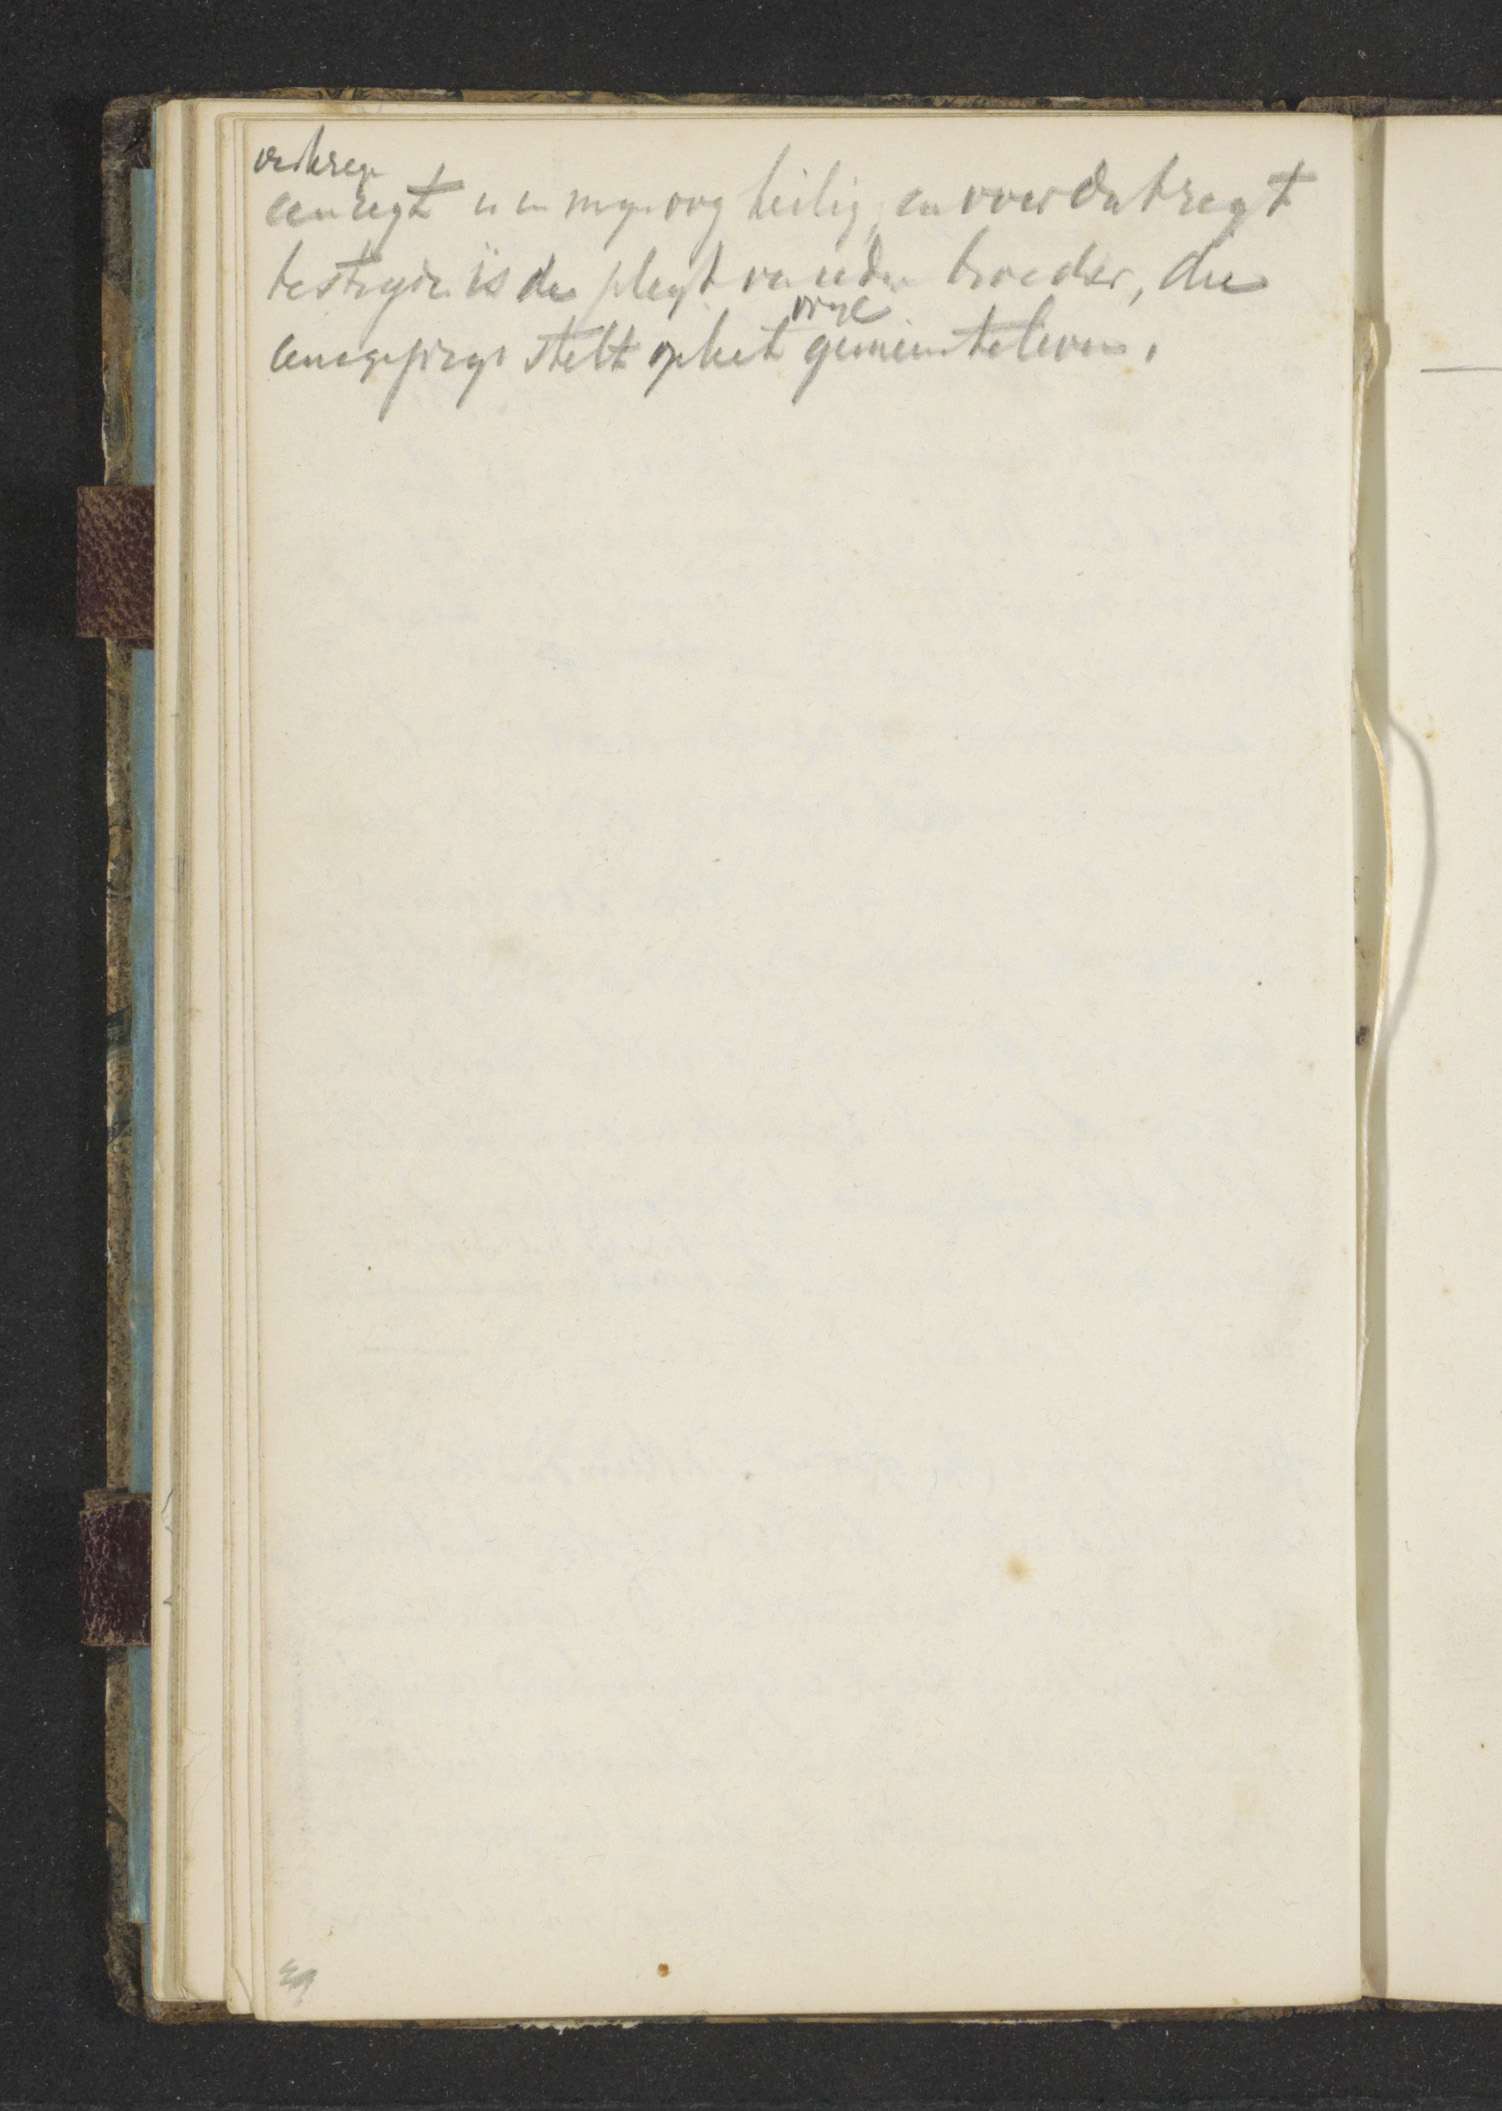 verkregen
een regt is in mijn oog heilig, en voor dat regt
te strijden is de pligt van ieder broeder, die
eenigen prijs stelt op het vrije gemeenteleven.